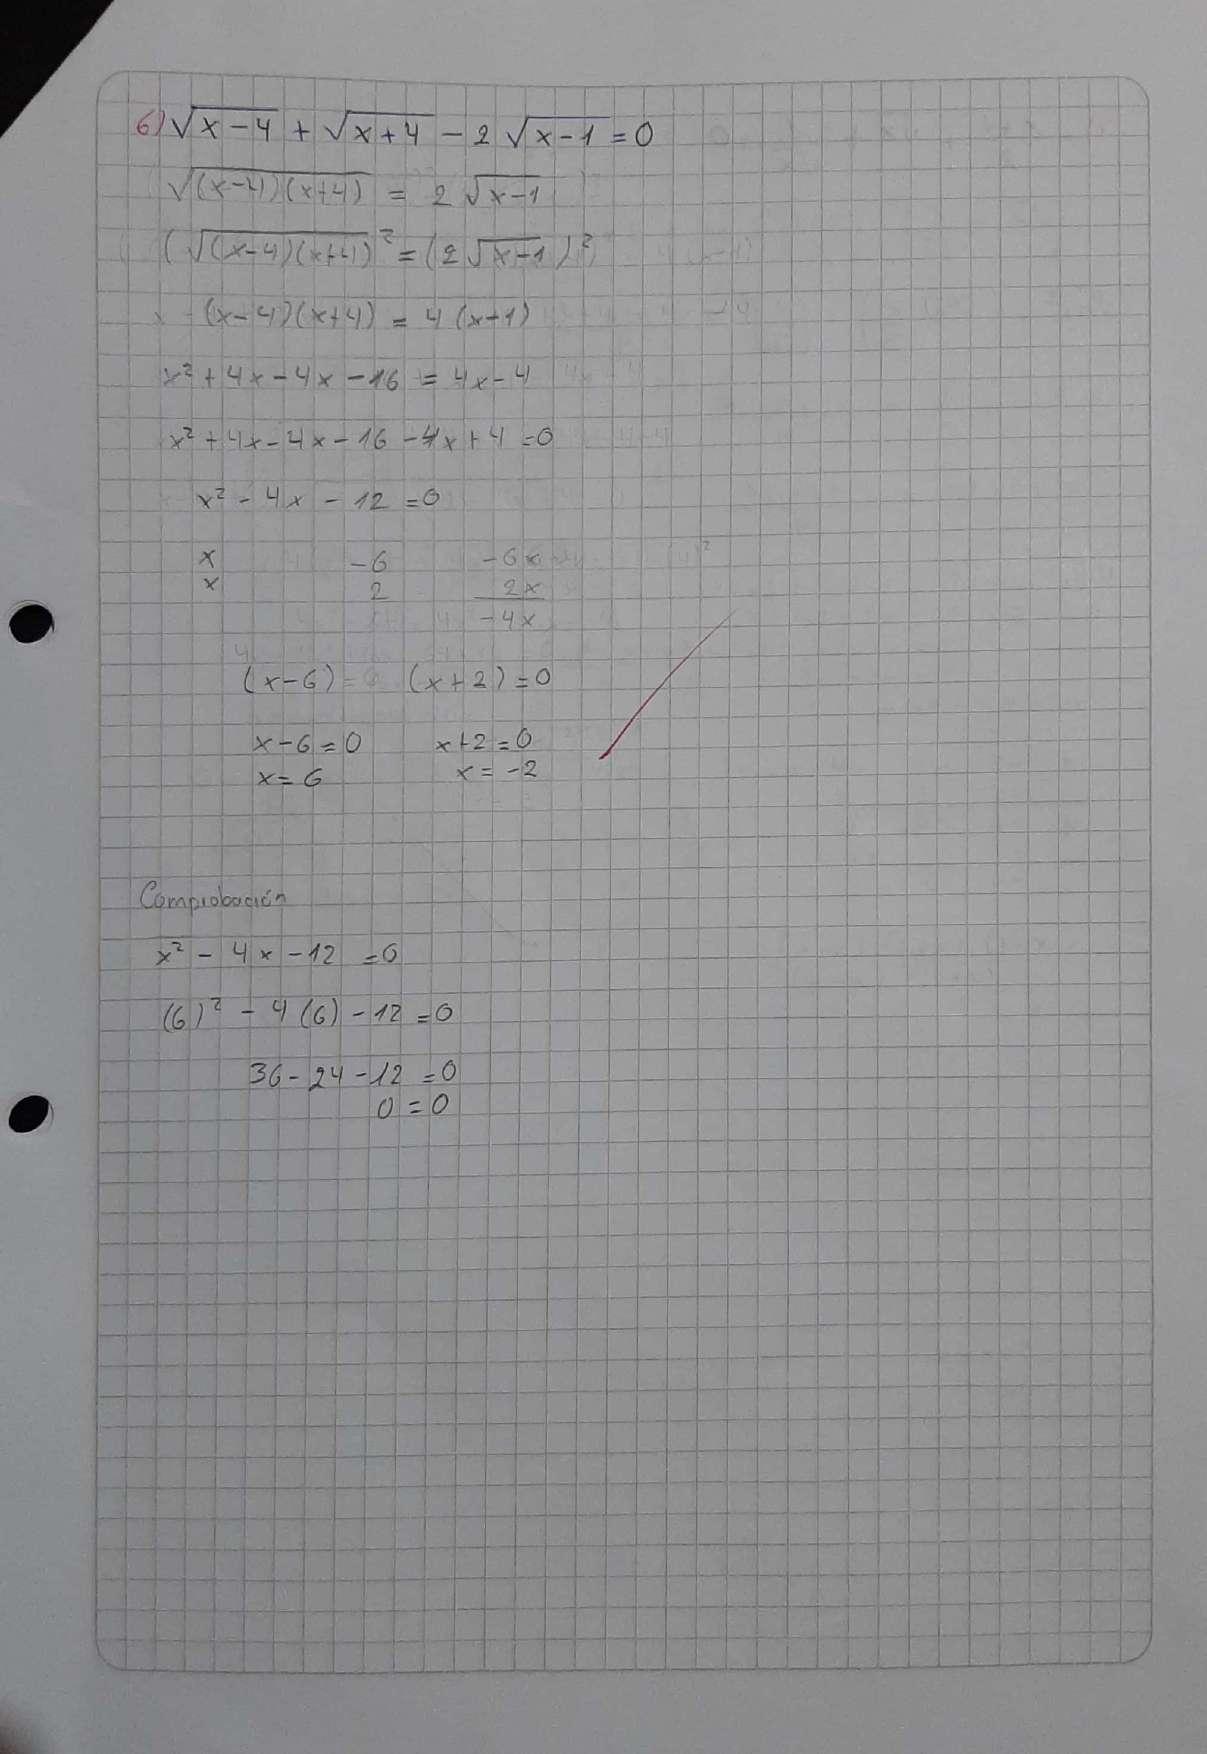 6) √x-4 + √x+4 - 2 √x-1 = 0
√(x-4)(x+4) = 2 √x-1
(√(x-4)(x+4))² = (2 √x-1)²
(x-4)(x+4) = 4 (x+1)
x² + 4x - 4x - 16 = 4x - 4
x² + 4x - 4x - 16 - 4x + 4 = 0
x² - 4x - 12 = 0
x -6 -6x
x 2 2x
-4x
(x-6) = 0 (x+2) = 0
x-6=0 x+2=0
x=6 x=-2
Comprobación
x² - 4x - 12 = 0
(6)² - 4(6) - 12 = 0
36 - 24 - 12 = 0
0 = 0